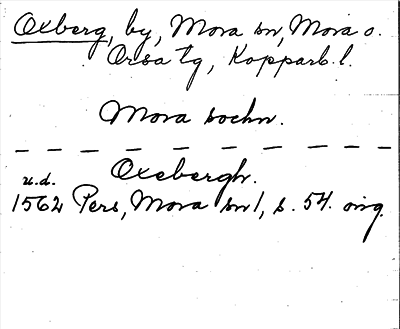 Oxberg, by, Mora sn, Mora o.
Orsa tg, Kopparb. l.
Mora sochn.
Oxebergh.
u.d.
1562 Pers, Mora sn 1, s. 54. orig.